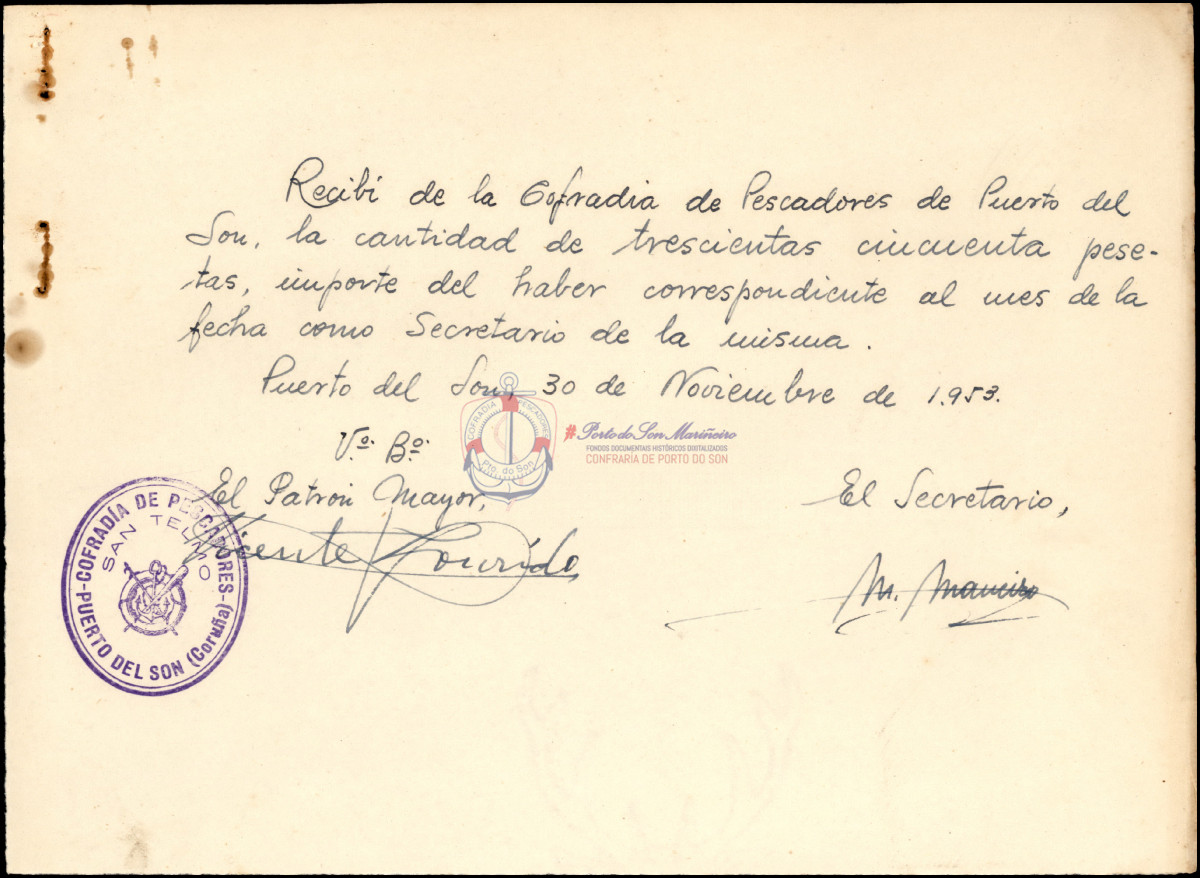 Recibí de la Cofradia de Pescadores de Puerto del
Son, la cantidad de trescientas cincuenta pese-
tas, importe del haber correspondiente al mes de la
fecha como Secretario de la misma.
Puerto del Son, 30 de Noviembre de 1.953.
COFRADIA PESCADORES
Pto. do Son
#Porto do Son Mariñeiro
FONDOS DOCUMENTAIS HISTÓRICOS DIGITALIZADOS
CONFRARÍA DE PORTO DO SON
Vº. Bº.
El Patron Mayor,
El Secretario,
Vicente Lourido
M. Maneiro
-COFRADÍA DE PESCADORES-
SAN TELMO
PUERTO DEL SON (Coruña)